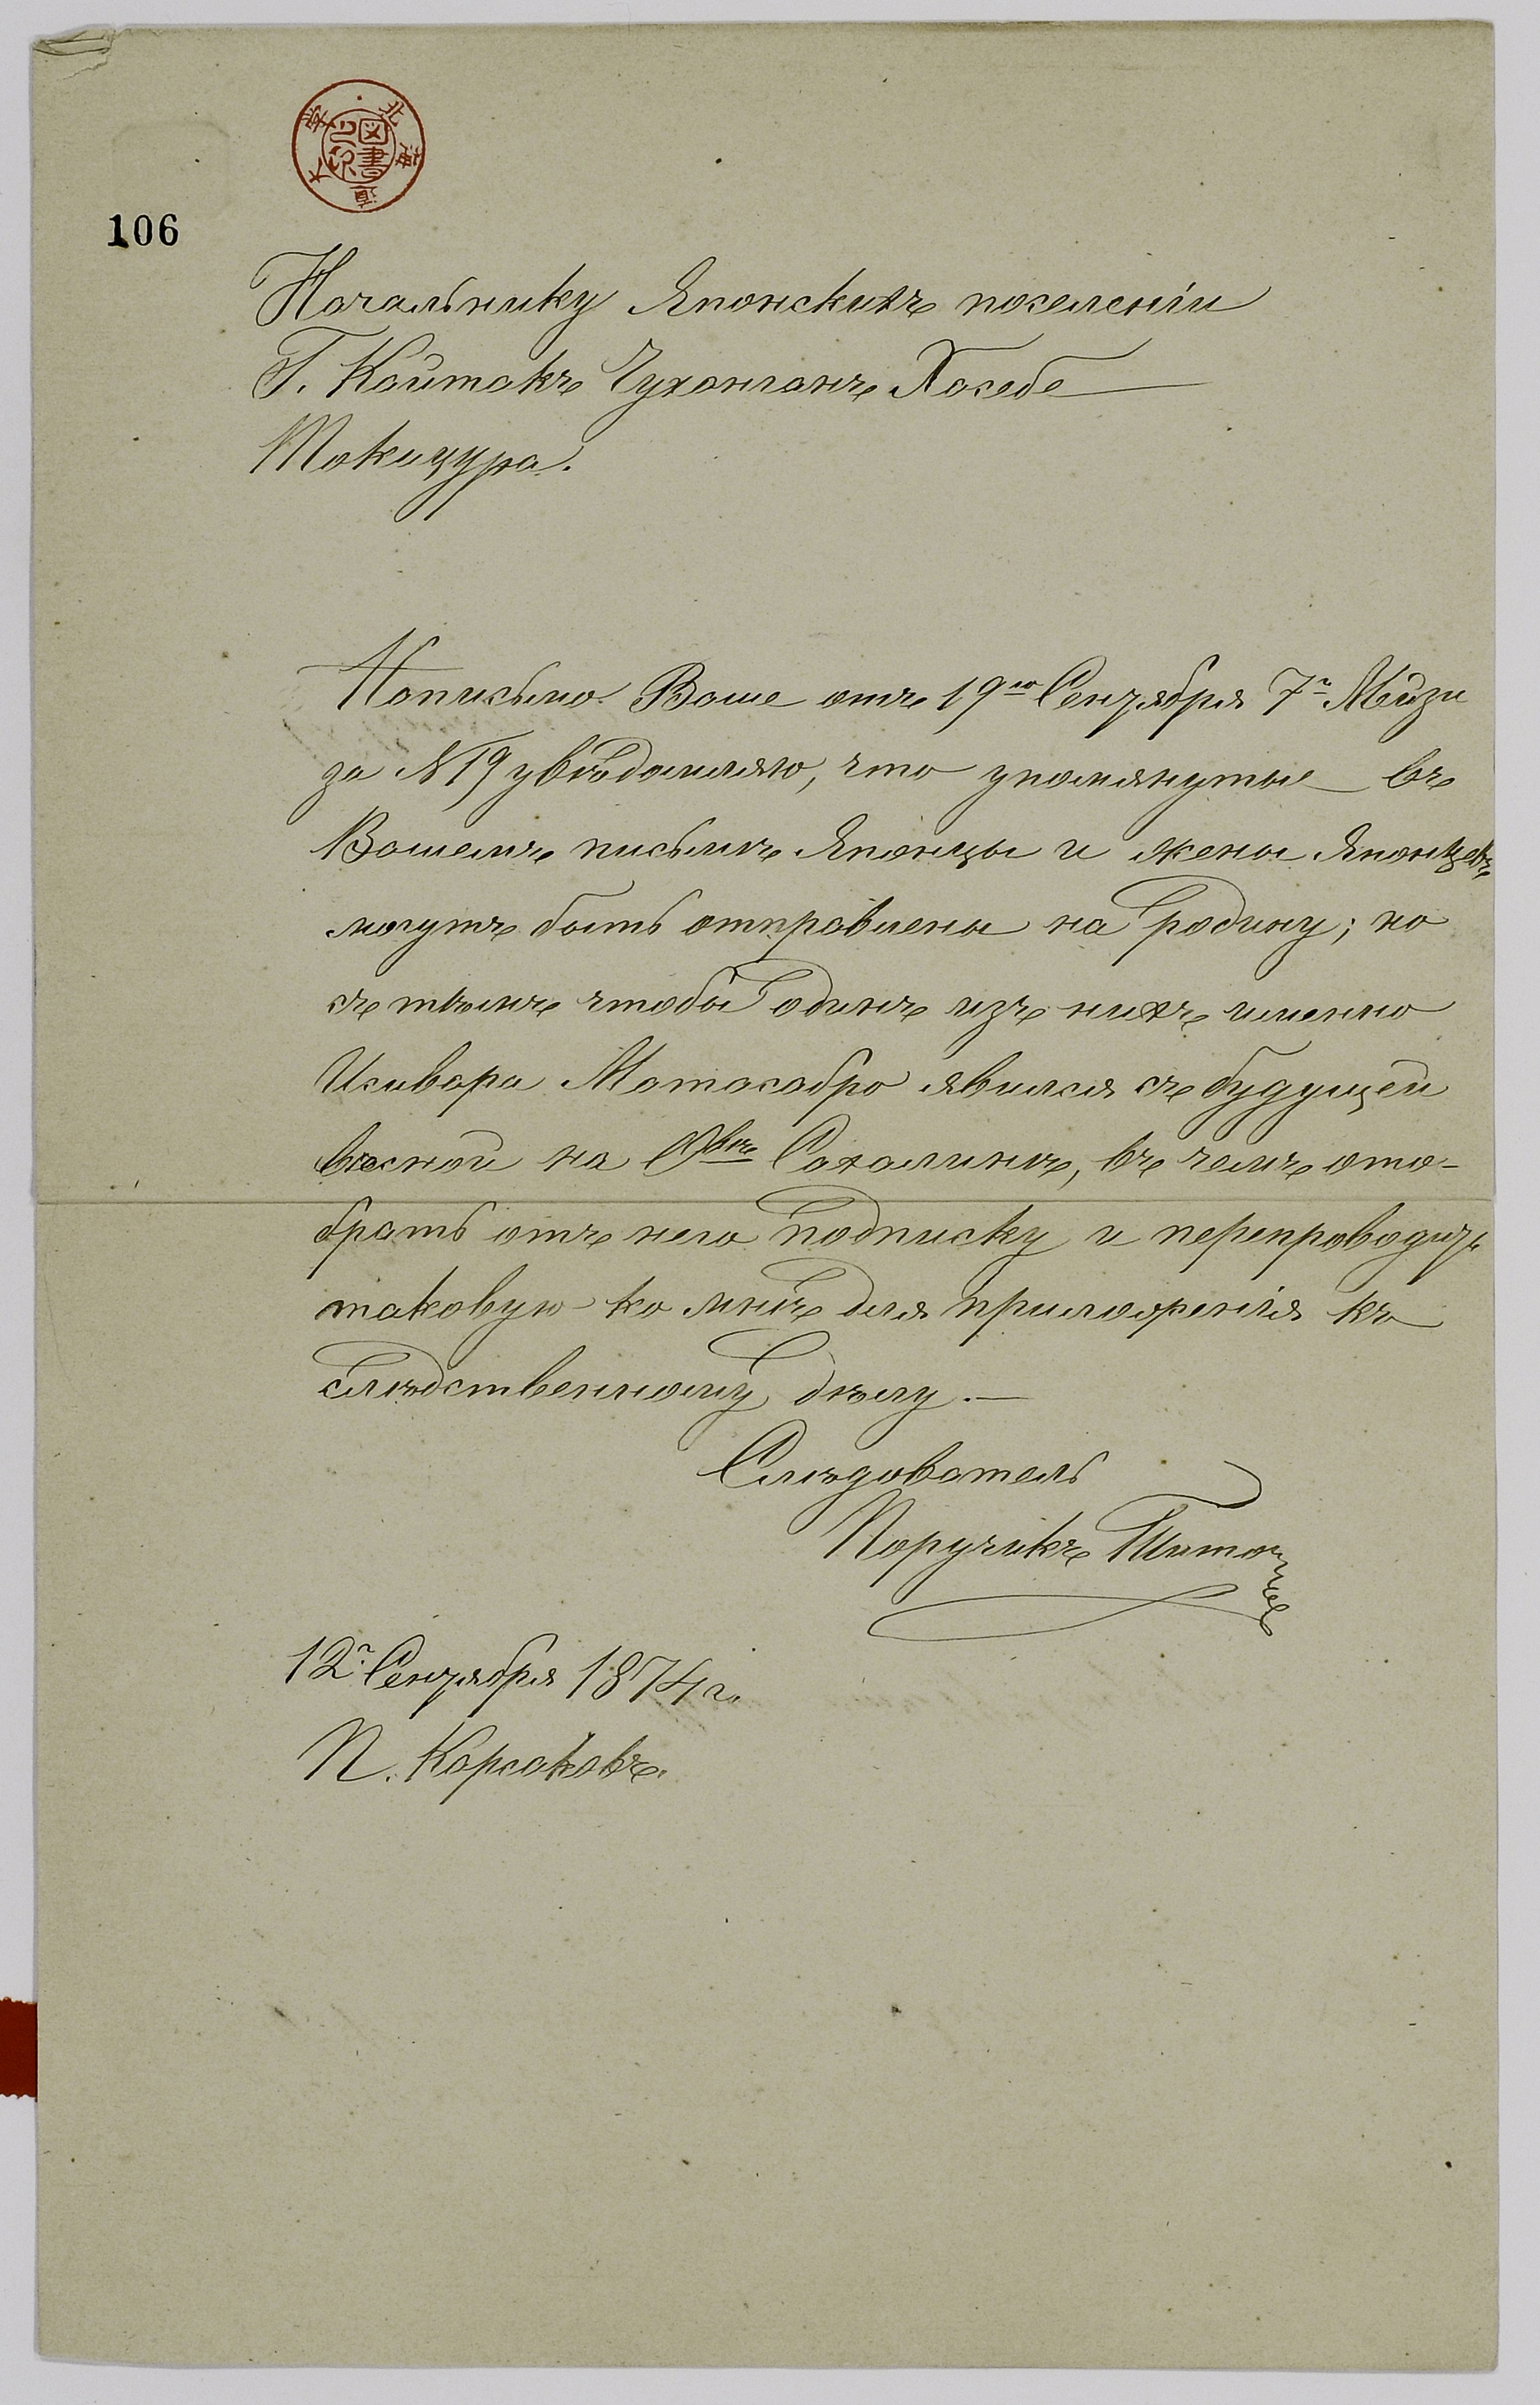 北海道大學
図書之印
106
Начальнику Японскихъ поселеній
Г. Кайтакъ Чухангангъ Хасебе
Токицура.
На письмо Ваше отъ 19го Сентября 7г. Мейзи
за №19 увѣдомляю, что упомянутые въ
Вашемъ письмѣ Японцы и жены Японцевъ
могутъ быть отправлены на родину; но
съ тѣмъ чтобы одинъ изъ нихъ именно
Исивара Матасабро явился съ будущей
весной на Овѣ Сахалинѣ, въ чемъ ото-
брать отъ него подписку и перепроводить
таковую ко мнѣ для приложенія къ
слѣдственному дѣлу.—
Слѣдователь
Поручикъ
12г. Сентября 1874 г.
П. Корсаковъ.